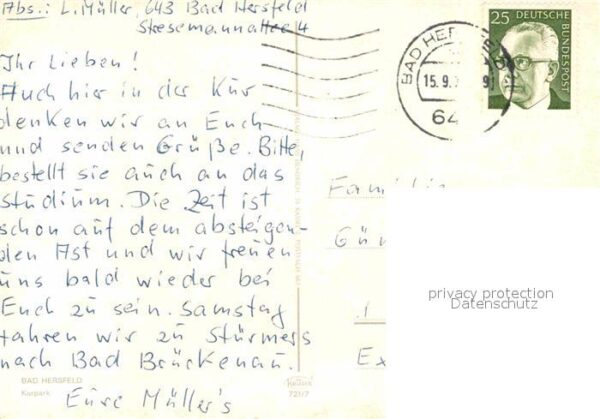 Abs.: L. Müller, 643 Bad Hersfeld
Stresemannallee 4
Ihr Lieben!
Auch hier in der Kur
denken wir an Euch
und senden Grüße. Bitte,
bestellt sie auch an das
Studium. Die Zeit ist
schon auf dem absteigen-
den Ast und wir freuen
uns bald wieder bei
Euch zu sein. Samstag
fahren wir zu Stürmers
nach Bad Brückenau.
Eure Müller's
BAD HERSFELD
Kurpark
721/7
25 DEUTSCHE
BUNDESPOST
BAD HERSFELD
15.9.
9
64
Familie
Gün
1
Ex
privacy protection
Datenschutz